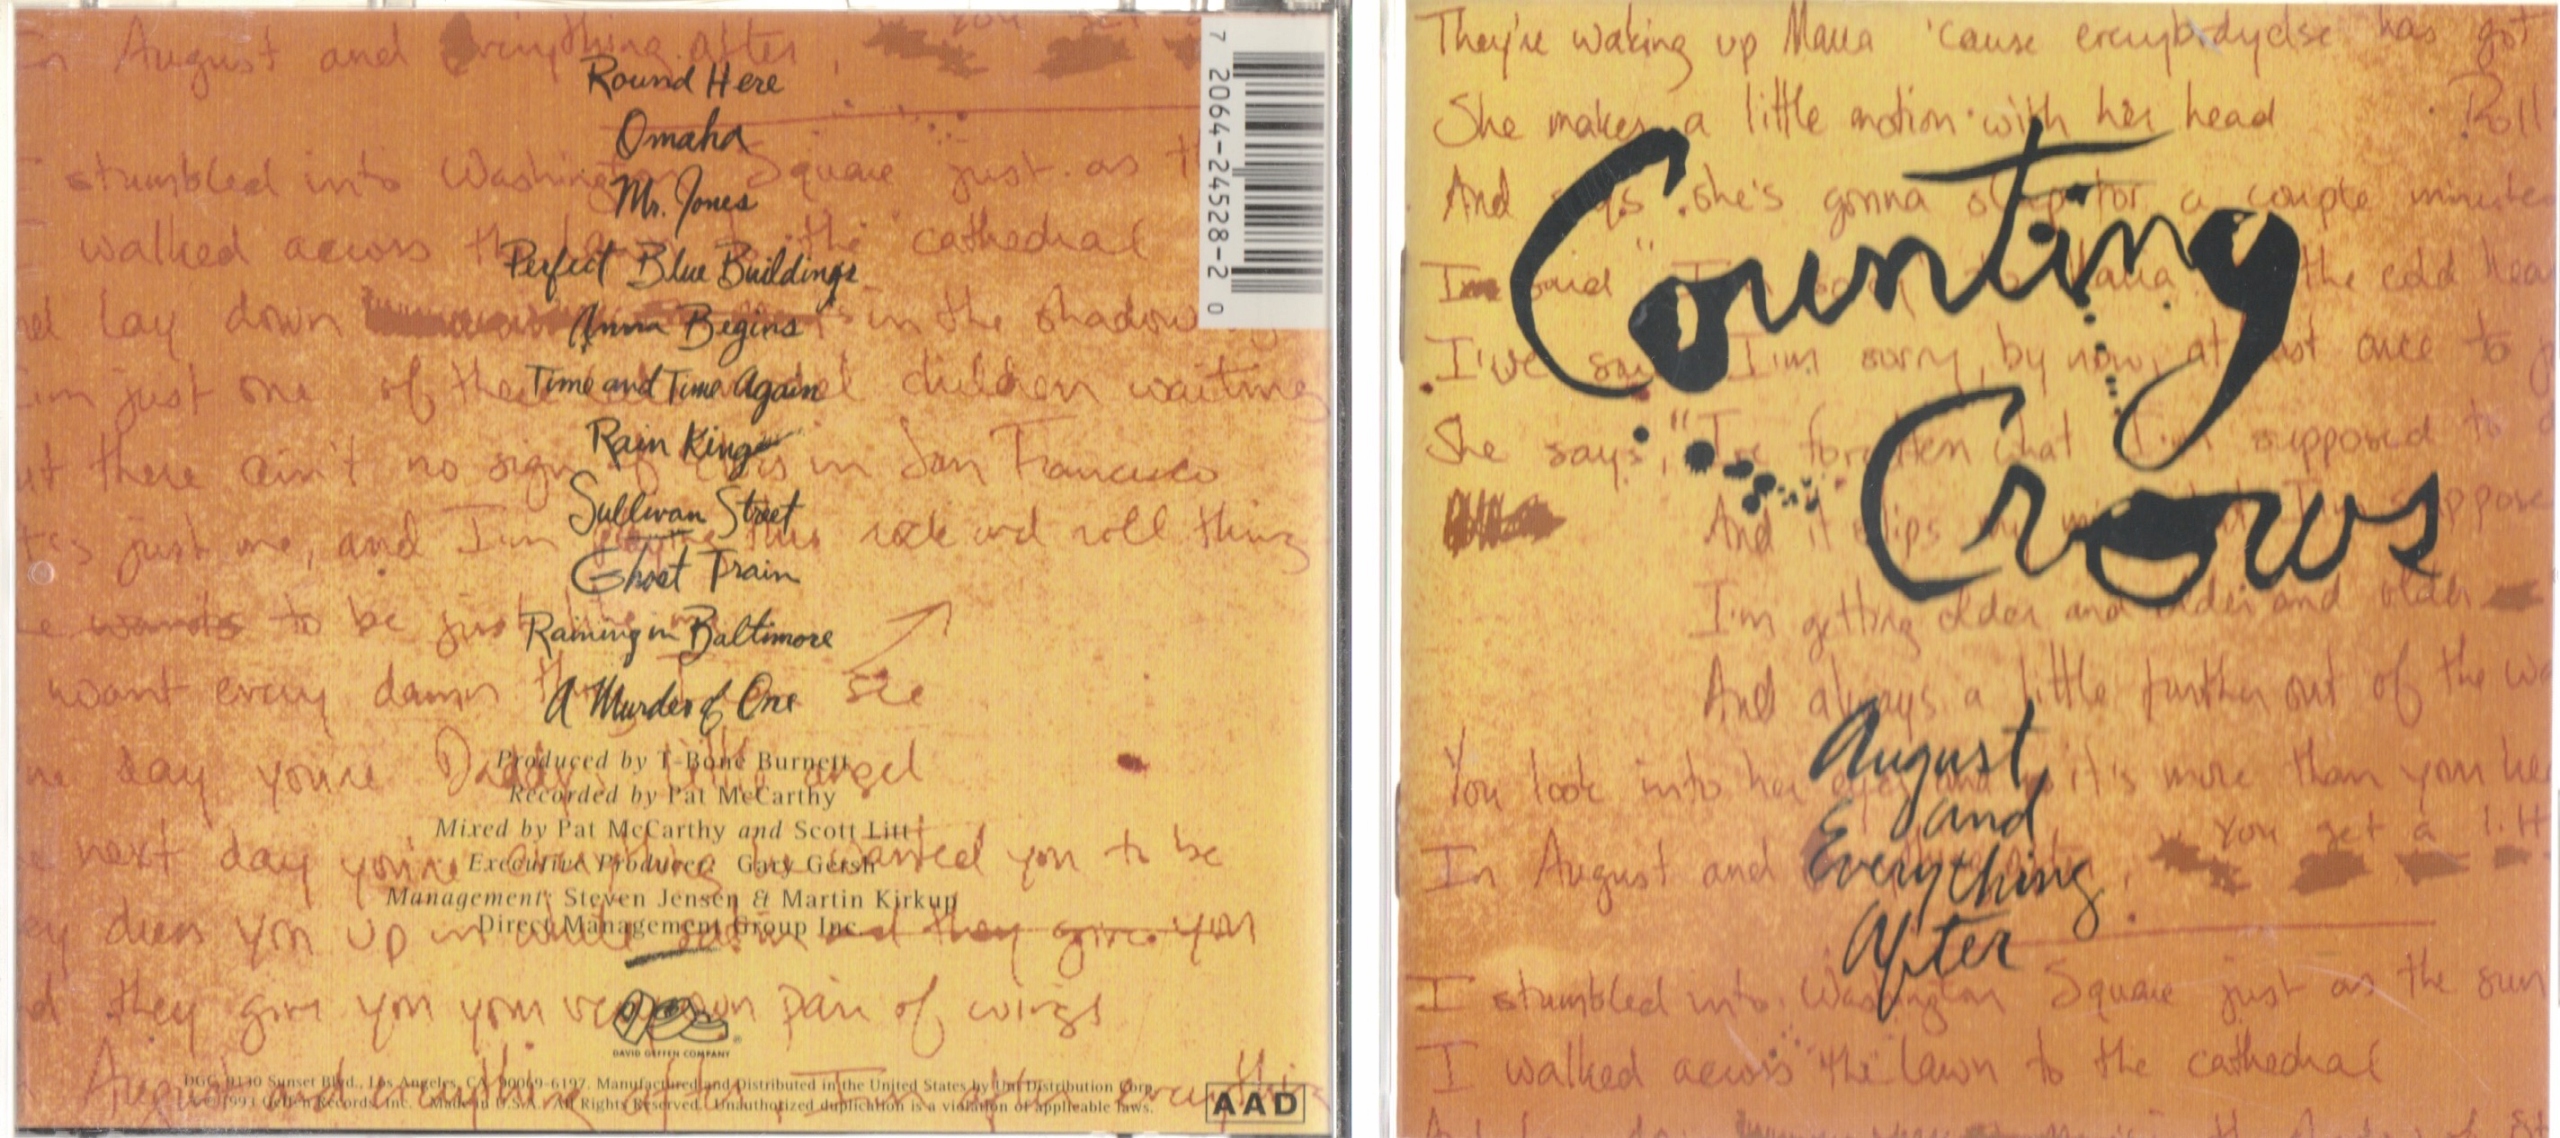 In August and everything after, you get a
Round Here
Omaha
I stumbled into Washington Square just as t
Mr. Jones
I walked across the lawn to the cathedral
Perfect Blue Buildings
lay down in the shadow
Anna Begins
I'm just one of these children waiting
Time and Time Again
Rain King
ut there ain't no sign of in San Francisco
Sullivan Street
t's just me, and I'm this rock and roll thing
Ghost Train
e wants to be just like me
Raining in Baltimore
want every damn thing I see
A Murder of One
ne day you're Daddy's little angel
Produced by T-Bone Burnett
Recorded by Pat McCarthy
Mixed by Pat McCarthy and Scott Litt
next day you're everything he wanted you to be
Executive Producer: Gary Gersh
Management: Steven Jensen & Martin Kirkup
Direct Management Group Inc.
ey dress you up in white satin and they give you
d they give you your very own pair of wings
DAVID GEFFEN COMPANY
August and everything after I'm after everything
DGC, 9130 Sunset Blvd., Los Angeles, CA 90069-6197. Manufactured and Distributed in the United States by Uni Distribution Corp.
1993 Geffen Records, Inc. Made in U.S.A. All Rights Reserved. Unauthorized duplication is a violation of applicable laws.
AAD
7 2064-24528-2 0
They're waking up Maria 'cause everybody else has got
She makes a little motion with her head
Roll
And says she's gonna sleep for a couple minutes
Counting
I said "I'm sorry to Maria the cold hear
I've said I'm sorry, by now, at least once to j
Crows
She says, "I've forgotten what I'm supposed to d
And it slips my mind what I'm suppose
I'm getting older and older and older
And always a little further out of the wa
You look into her eyes and it's more than your hea
August
and
Everything
After
In August and everything after, you get a litt
I stumbled into Washington Square just as the sun
I walked across the lawn to the cathedral